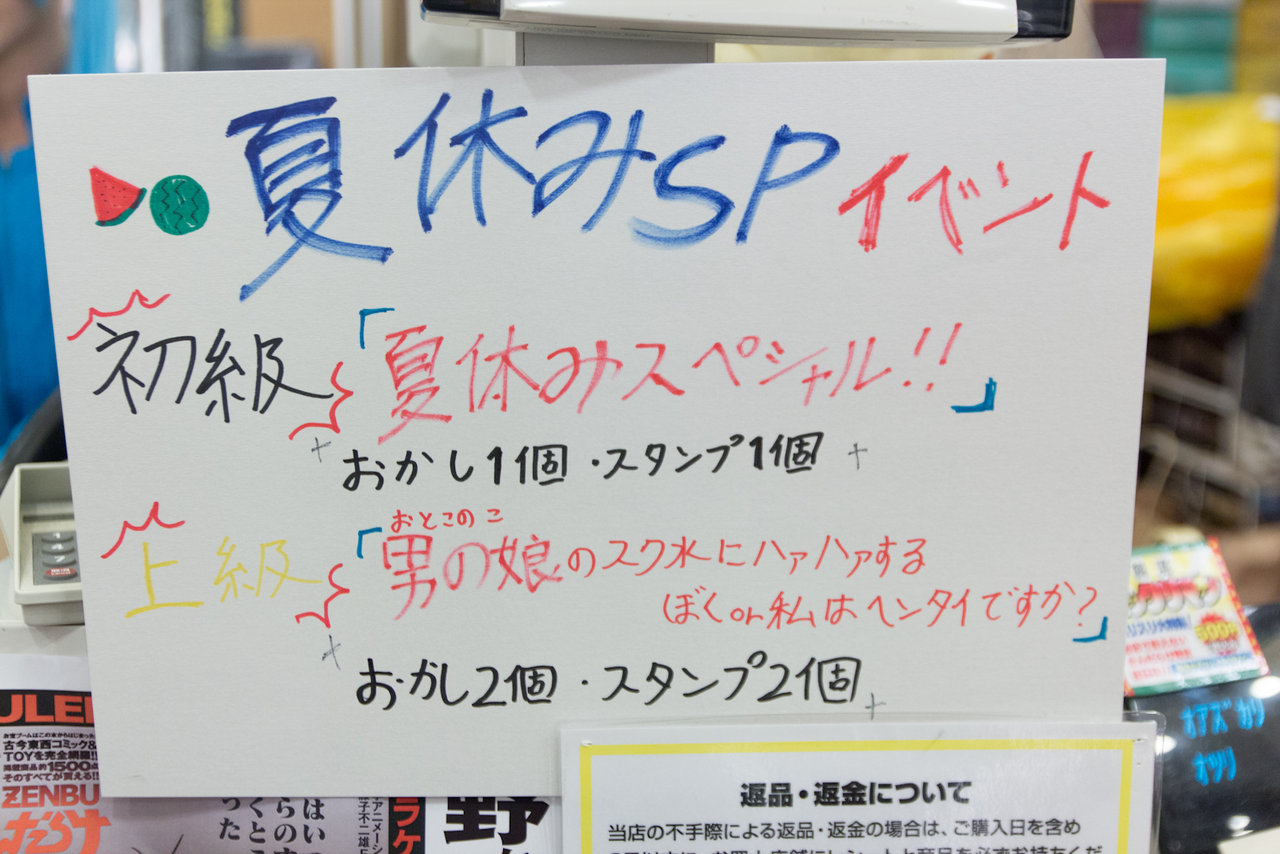 夏休みSPイベント
初級「夏休みスペシャル!!」
おかし1個・スタンプ1個
おとこのこ
上級「男の娘のスク水にハァハァする
ぼくor私はヘンタイですか?」
おかし2個・スタンプ2個
返品・返金について
当店の不手際による返品・返金の場合は、ご購入日を含め
古今東西コミック&
TOYを完全網羅!!
約1500点
そのすべてが買える!!
ZENBU
だらけ
野